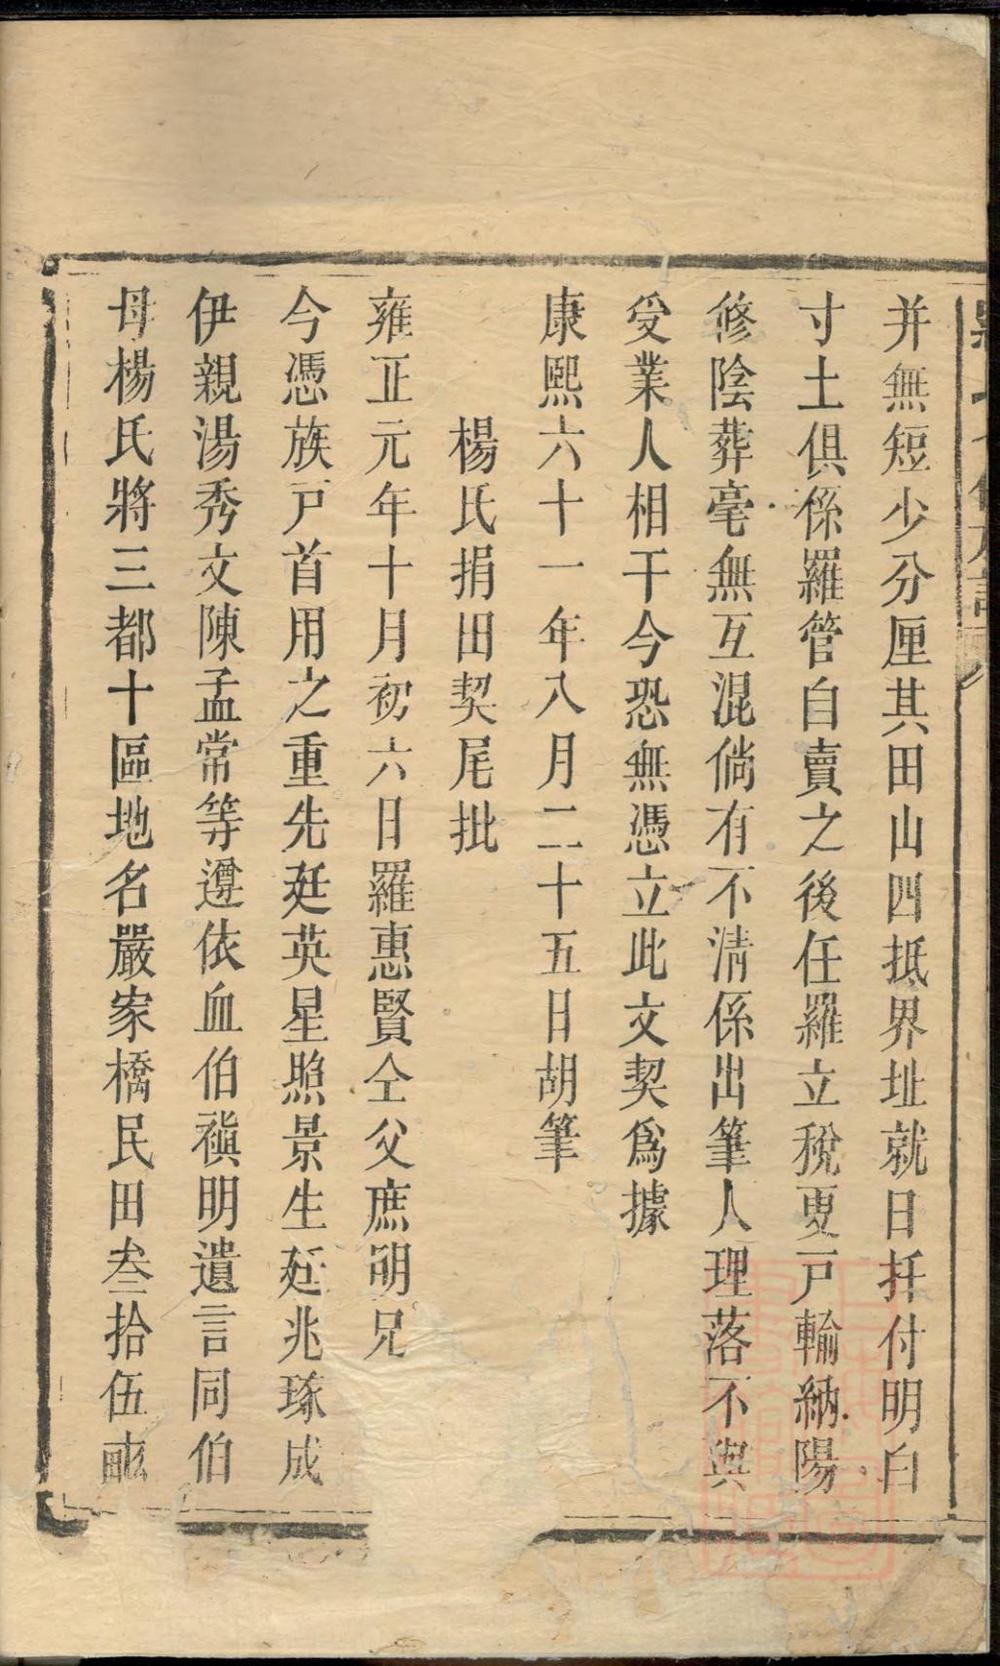 并無短少分厘其田山四抵界址就日扦付明白
寸土俱係羅管自賣之後任羅立稅更戸輸納陽
修陰葬毫無互混倘有不清係出筆人理落不與
受業人相干今恐無憑立此文契爲據
康熙六十一年八月二十五日胡筆
楊氏捐田契尾批
雍正元年十月初六日羅惠賢仝父庶明兄
今憑族戸首用之重先廷英星照景生廷兆琢成
伊親湯秀文陳孟常等遵依血伯禛明遺言同伯
母楊氏將三都十區地名嚴家橋民田叁拾伍畝